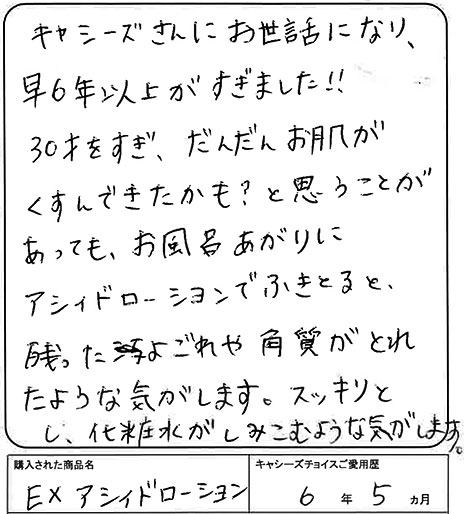 キャシーズさんにお世話になり、
早6年以上がすぎました!!
30才をすぎ、だんだんお肌が
くすんできたかも?と思うことが
あっても、お風呂あがりに
アシィドローションでふきとると、
残ったよごれや角質がとれ
たような気がします。スッキリと
し、化粧水がしみこむような気がします。
購入された商品名
キャシーズチョイスご愛用歴
EXアシィドローション
6年5ヵ月